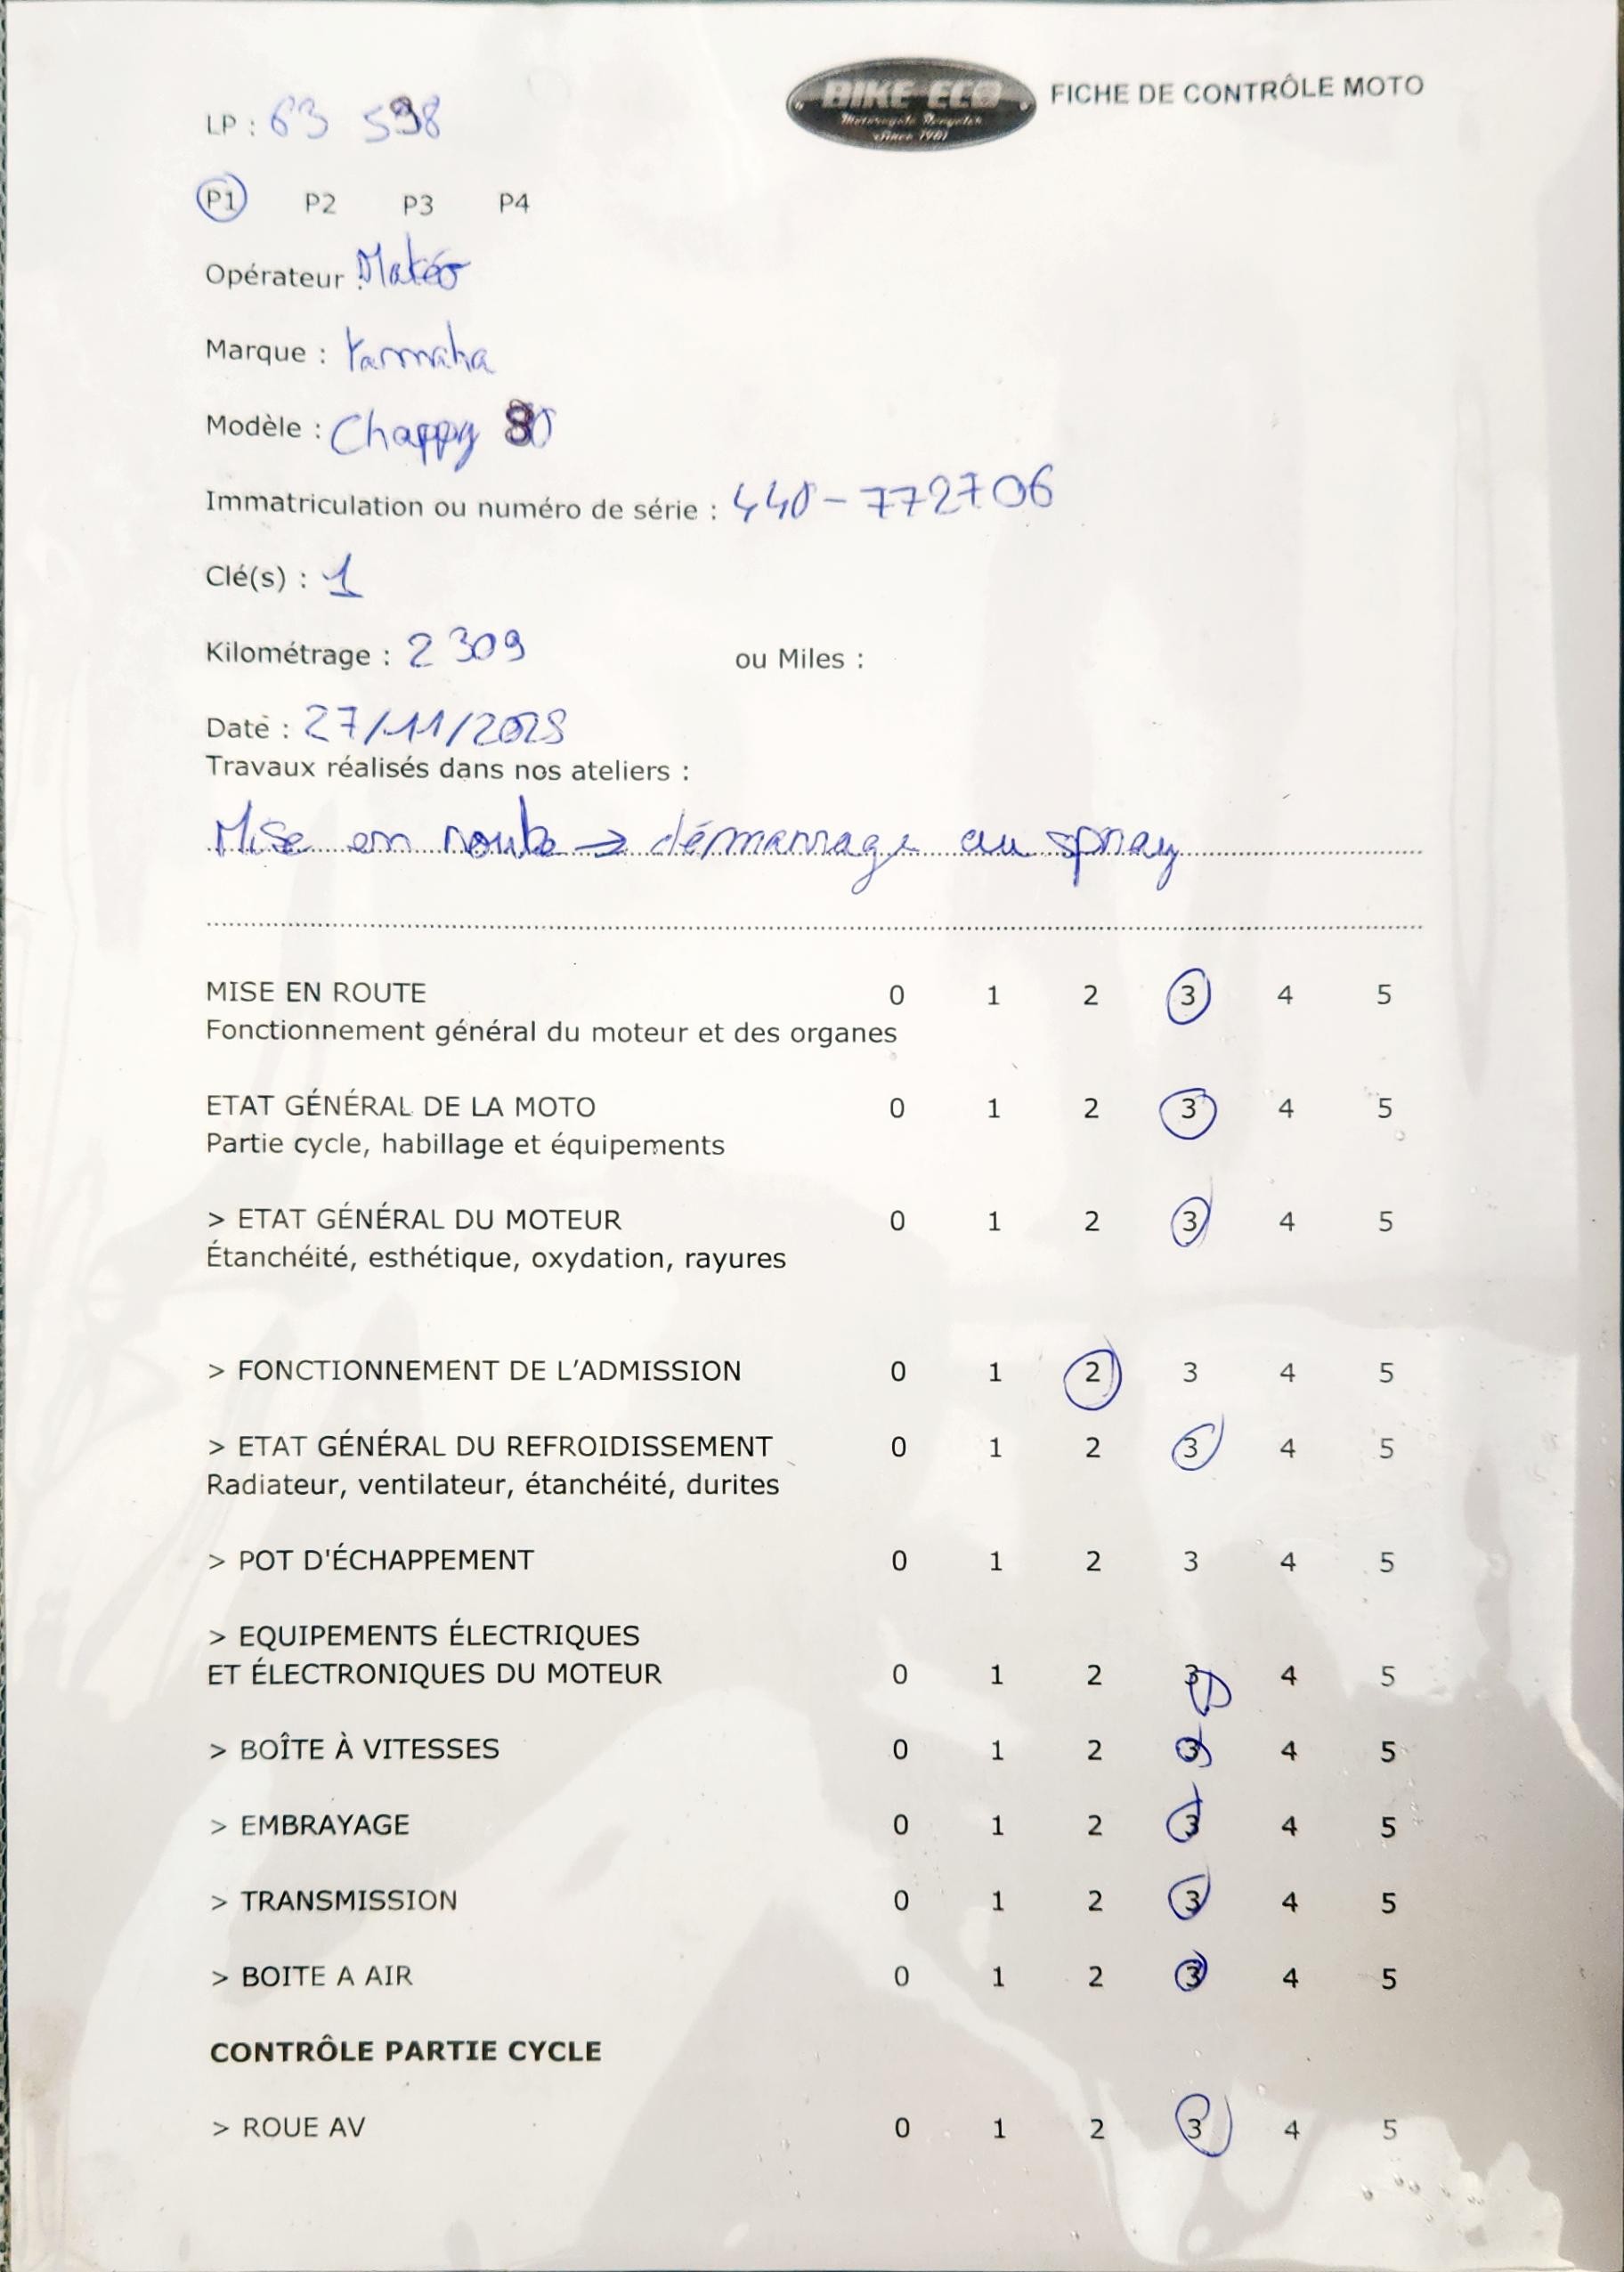 BIKE ECO
Motorcycle Recycler
Since 1981
FICHE DE CONTRÔLE MOTO
LP : 63 598
P1 P2 P3 P4
Opérateur : Matéo
Marque : Yamaha
Modèle : Chappy 80
Immatriculation ou numéro de série : 440-772706
Clé(s) : 1
Kilométrage : 2309 ou Miles :
Date : 27/11/2025
Travaux réalisés dans nos ateliers :
Mise en route → démarrage au spray
MISE EN ROUTE 0 1 2 3 4 5
Fonctionnement général du moteur et des organes
ETAT GÉNÉRAL DE LA MOTO 0 1 2 3 4 5
Partie cycle, habillage et équipements
> ETAT GÉNÉRAL DU MOTEUR 0 1 2 3 4 5
Étanchéité, esthétique, oxydation, rayures
> FONCTIONNEMENT DE L'ADMISSION 0 1 2 3 4 5
> ETAT GÉNÉRAL DU REFROIDISSEMENT 0 1 2 3 4 5
Radiateur, ventilateur, étanchéité, durites
> POT D'ÉCHAPPEMENT 0 1 2 3 4 5
> EQUIPEMENTS ÉLECTRIQUES
ET ÉLECTRONIQUES DU MOTEUR 0 1 2 3 4 5
> BOÎTE À VITESSES 0 1 2 3 4 5
> EMBRAYAGE 0 1 2 3 4 5
> TRANSMISSION 0 1 2 3 4 5
> BOITE A AIR 0 1 2 3 4 5
CONTRÔLE PARTIE CYCLE
> ROUE AV 0 1 2 3 4 5